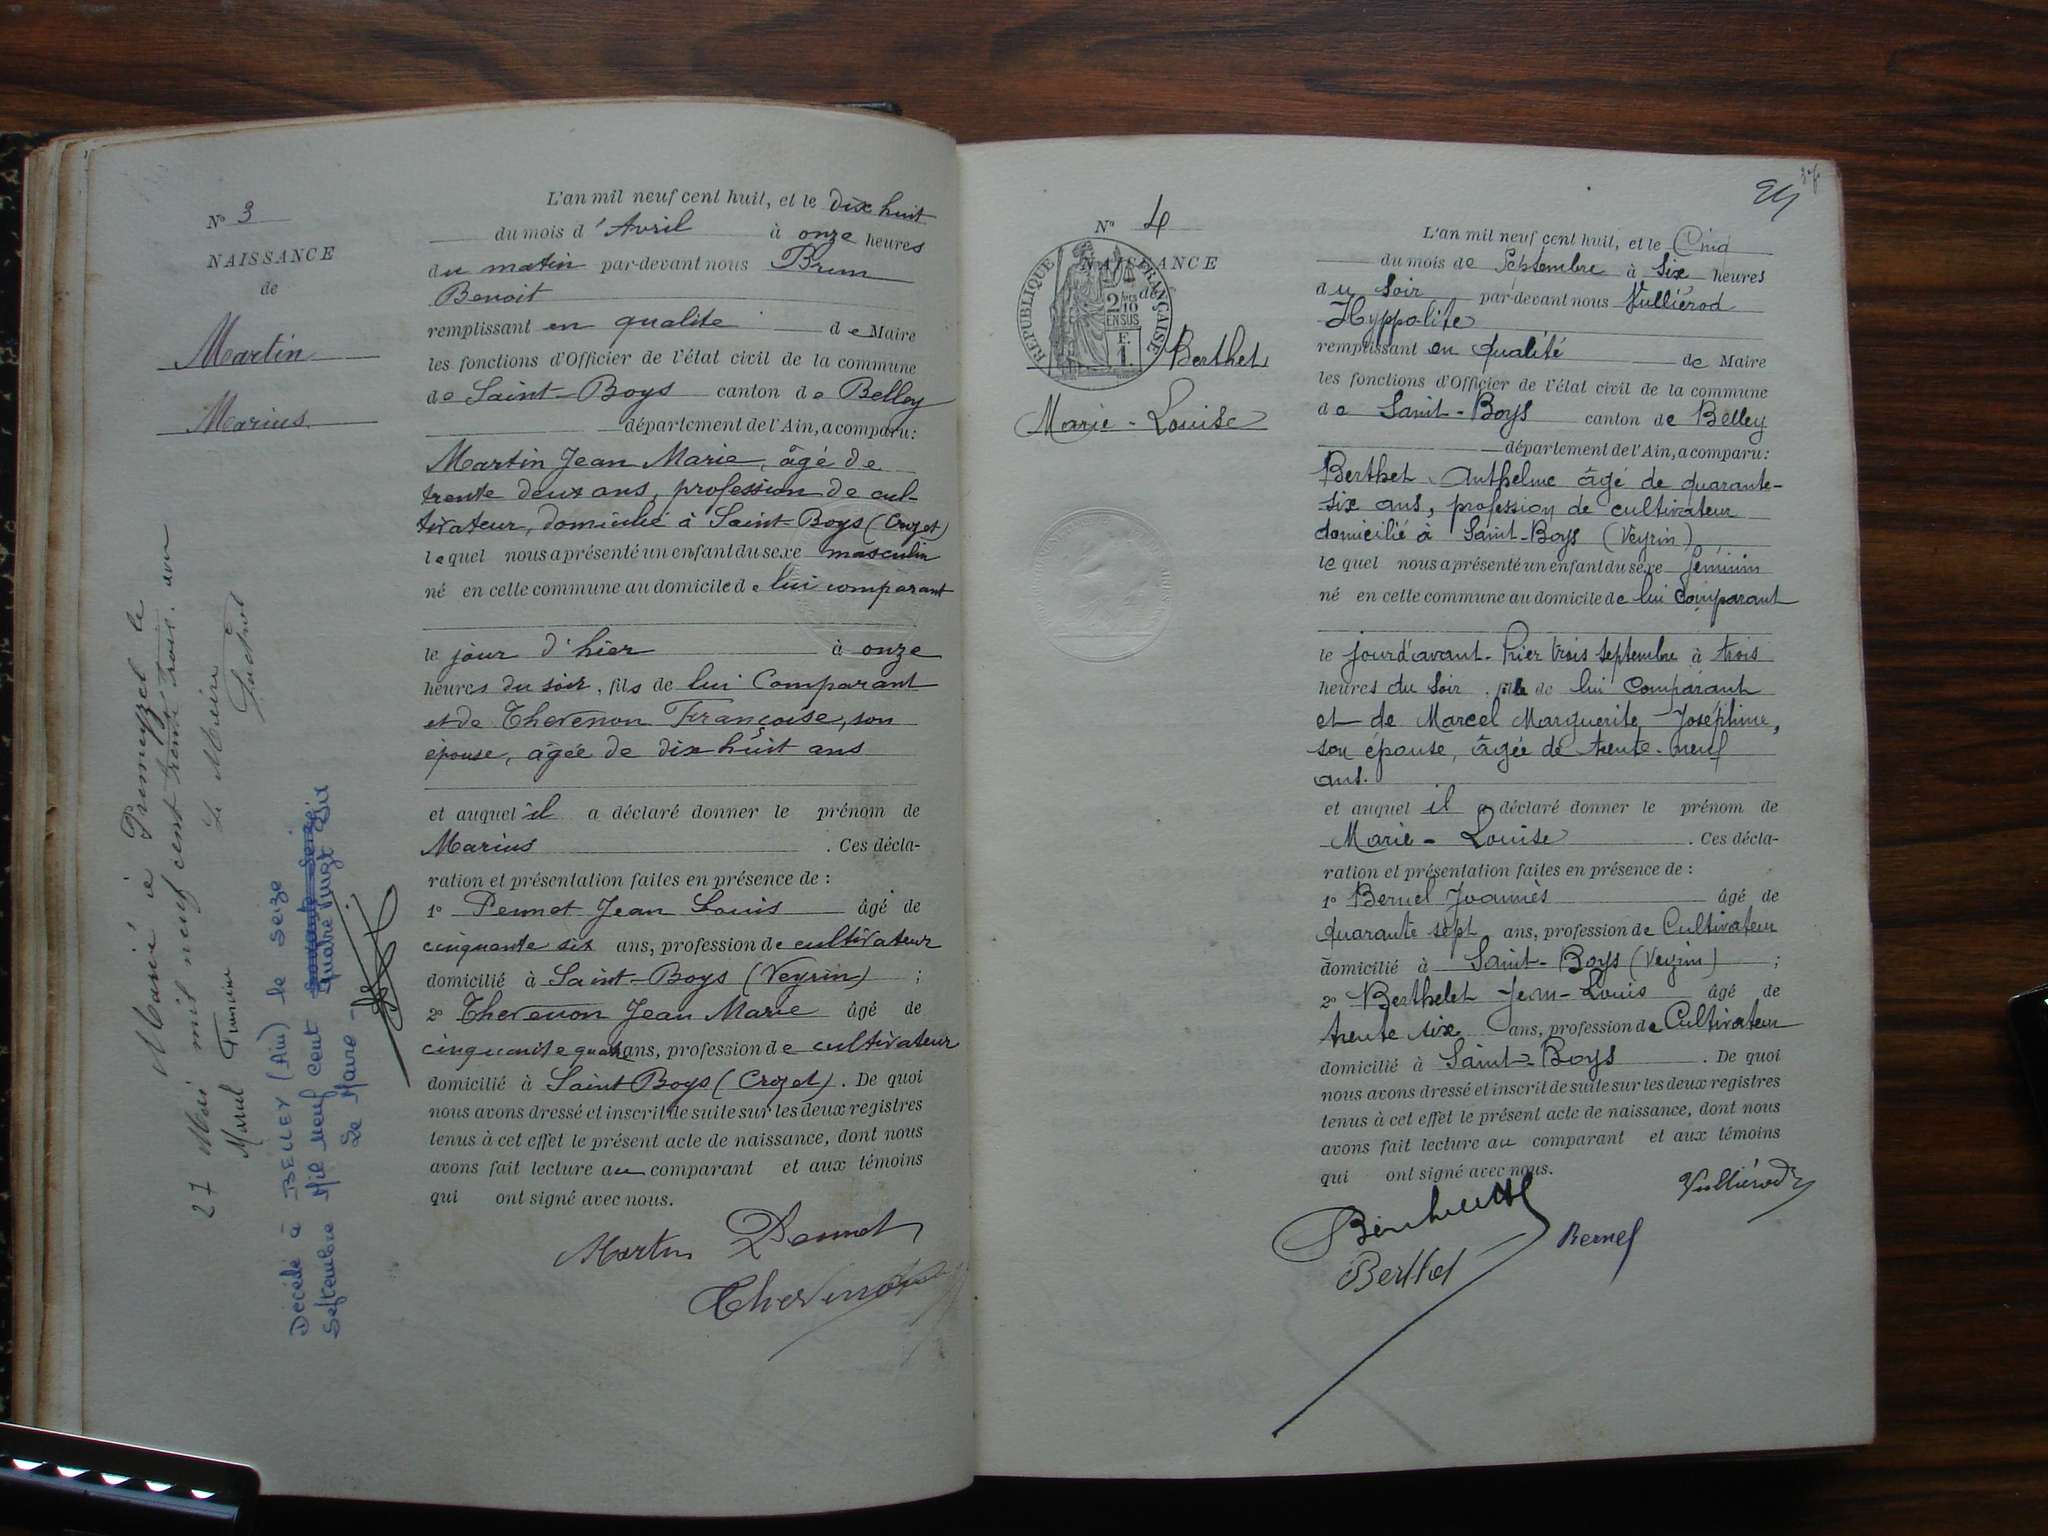 N° 3
NAISSANCE
de
Martin
Marius
L'an mil neuf cent huit, et le dix huit
du mois d'Avril à onze heures
du matin par-devant nous Brun
Benoit
remplissant en qualité de Maire
les fonctions d'Officier de l'état civil de la commune
de Saint-Boys canton de Belley
département de l'Ain, a comparu:
Martin Jean Marie, âgé de
trente deux ans, profession de cul-
tivateur, domicilié à Saint-Boys (Crozet)
lequel nous a présenté un enfant du sexe masculin
né en cette commune au domicile de lui comparant
le jour d'hier à onze
heures du soir, fils de lui Comparant
et de Thevenon Françoise, son
épouse, âgée de dix huit ans
et auquel il a déclaré donner le prénom de
Marius . Ces décla-
ration et présentation faites en présence de :
1° Pennet Jean Louis âgé de
cinquante six ans, profession de cultivateur
domicilié à Saint-Boys (Veyrin) ;
2° Thevenon Jean Marie âgé de
cinquante quatre ans, profession de cultivateur
domicilié à Saint Boys (Crozet). De quoi
nous avons dressé et inscrit de suite sur les deux registres
tenus à cet effet le présent acte de naissance, dont nous
avons fait lecture au comparant et aux témoins
qui ont signé avec nous.
Martin Pennet
Thevenon
Marié à Prémeyzel le
27 Mai mil neuf cent trente trois, avec
Marul Francine
Le Maire
Décédé à BELLEY (Ain) le seize
Septembre Mil neuf cent quatre vingt dix
Le Maire -
24
N° 4
NAISSANCE
de
RÉPUBLIQUE FRANÇAISE
2/10
EN SUS
F.
1.
Berthet
Marie-Louise
L'an mil neuf cent huit, et le Cinq
du mois de Septembre à six heures
du soir par-devant nous Vulliérod
Hyppolite
remplissant en qualité de Maire
les fonctions d'Officier de l'état civil de la commune
de Saint-Boys canton de Belley
département de l'Ain, a comparu:
Berthet Anthelme âgé de quarante-
six ans, profession de cultivateur
domicilié à Saint-Boys (Veyrin)
lequel nous a présenté un enfant du sexe féminin
né en cette commune au domicile de lui Comparant
le jour d'avant-hier trois septembre à trois
heures du soir, fille de lui Comparant
et de Marcel Marguerite Joséphine,
son épouse, âgée de trente-neuf
ans.
et auquel il a déclaré donner le prénom de
Marie-Louise . Ces décla-
ration et présentation faites en présence de :
1° Bernel Joannès âgé de
quarante sept ans, profession de Cultivateur
domicilié à Saint-Boys (Veyrin) ;
2° Berthelet Jean-Louis âgé de
trente six ans, profession de Cultivateur
domicilié à Saint-Boys . De quoi
nous avons dressé et inscrit de suite sur les deux registres
tenus à cet effet le présent acte de naissance, dont nous
avons fait lecture au comparant et aux témoins
qui ont signé avec nous.
Vulliérod
Bernel
Berthet